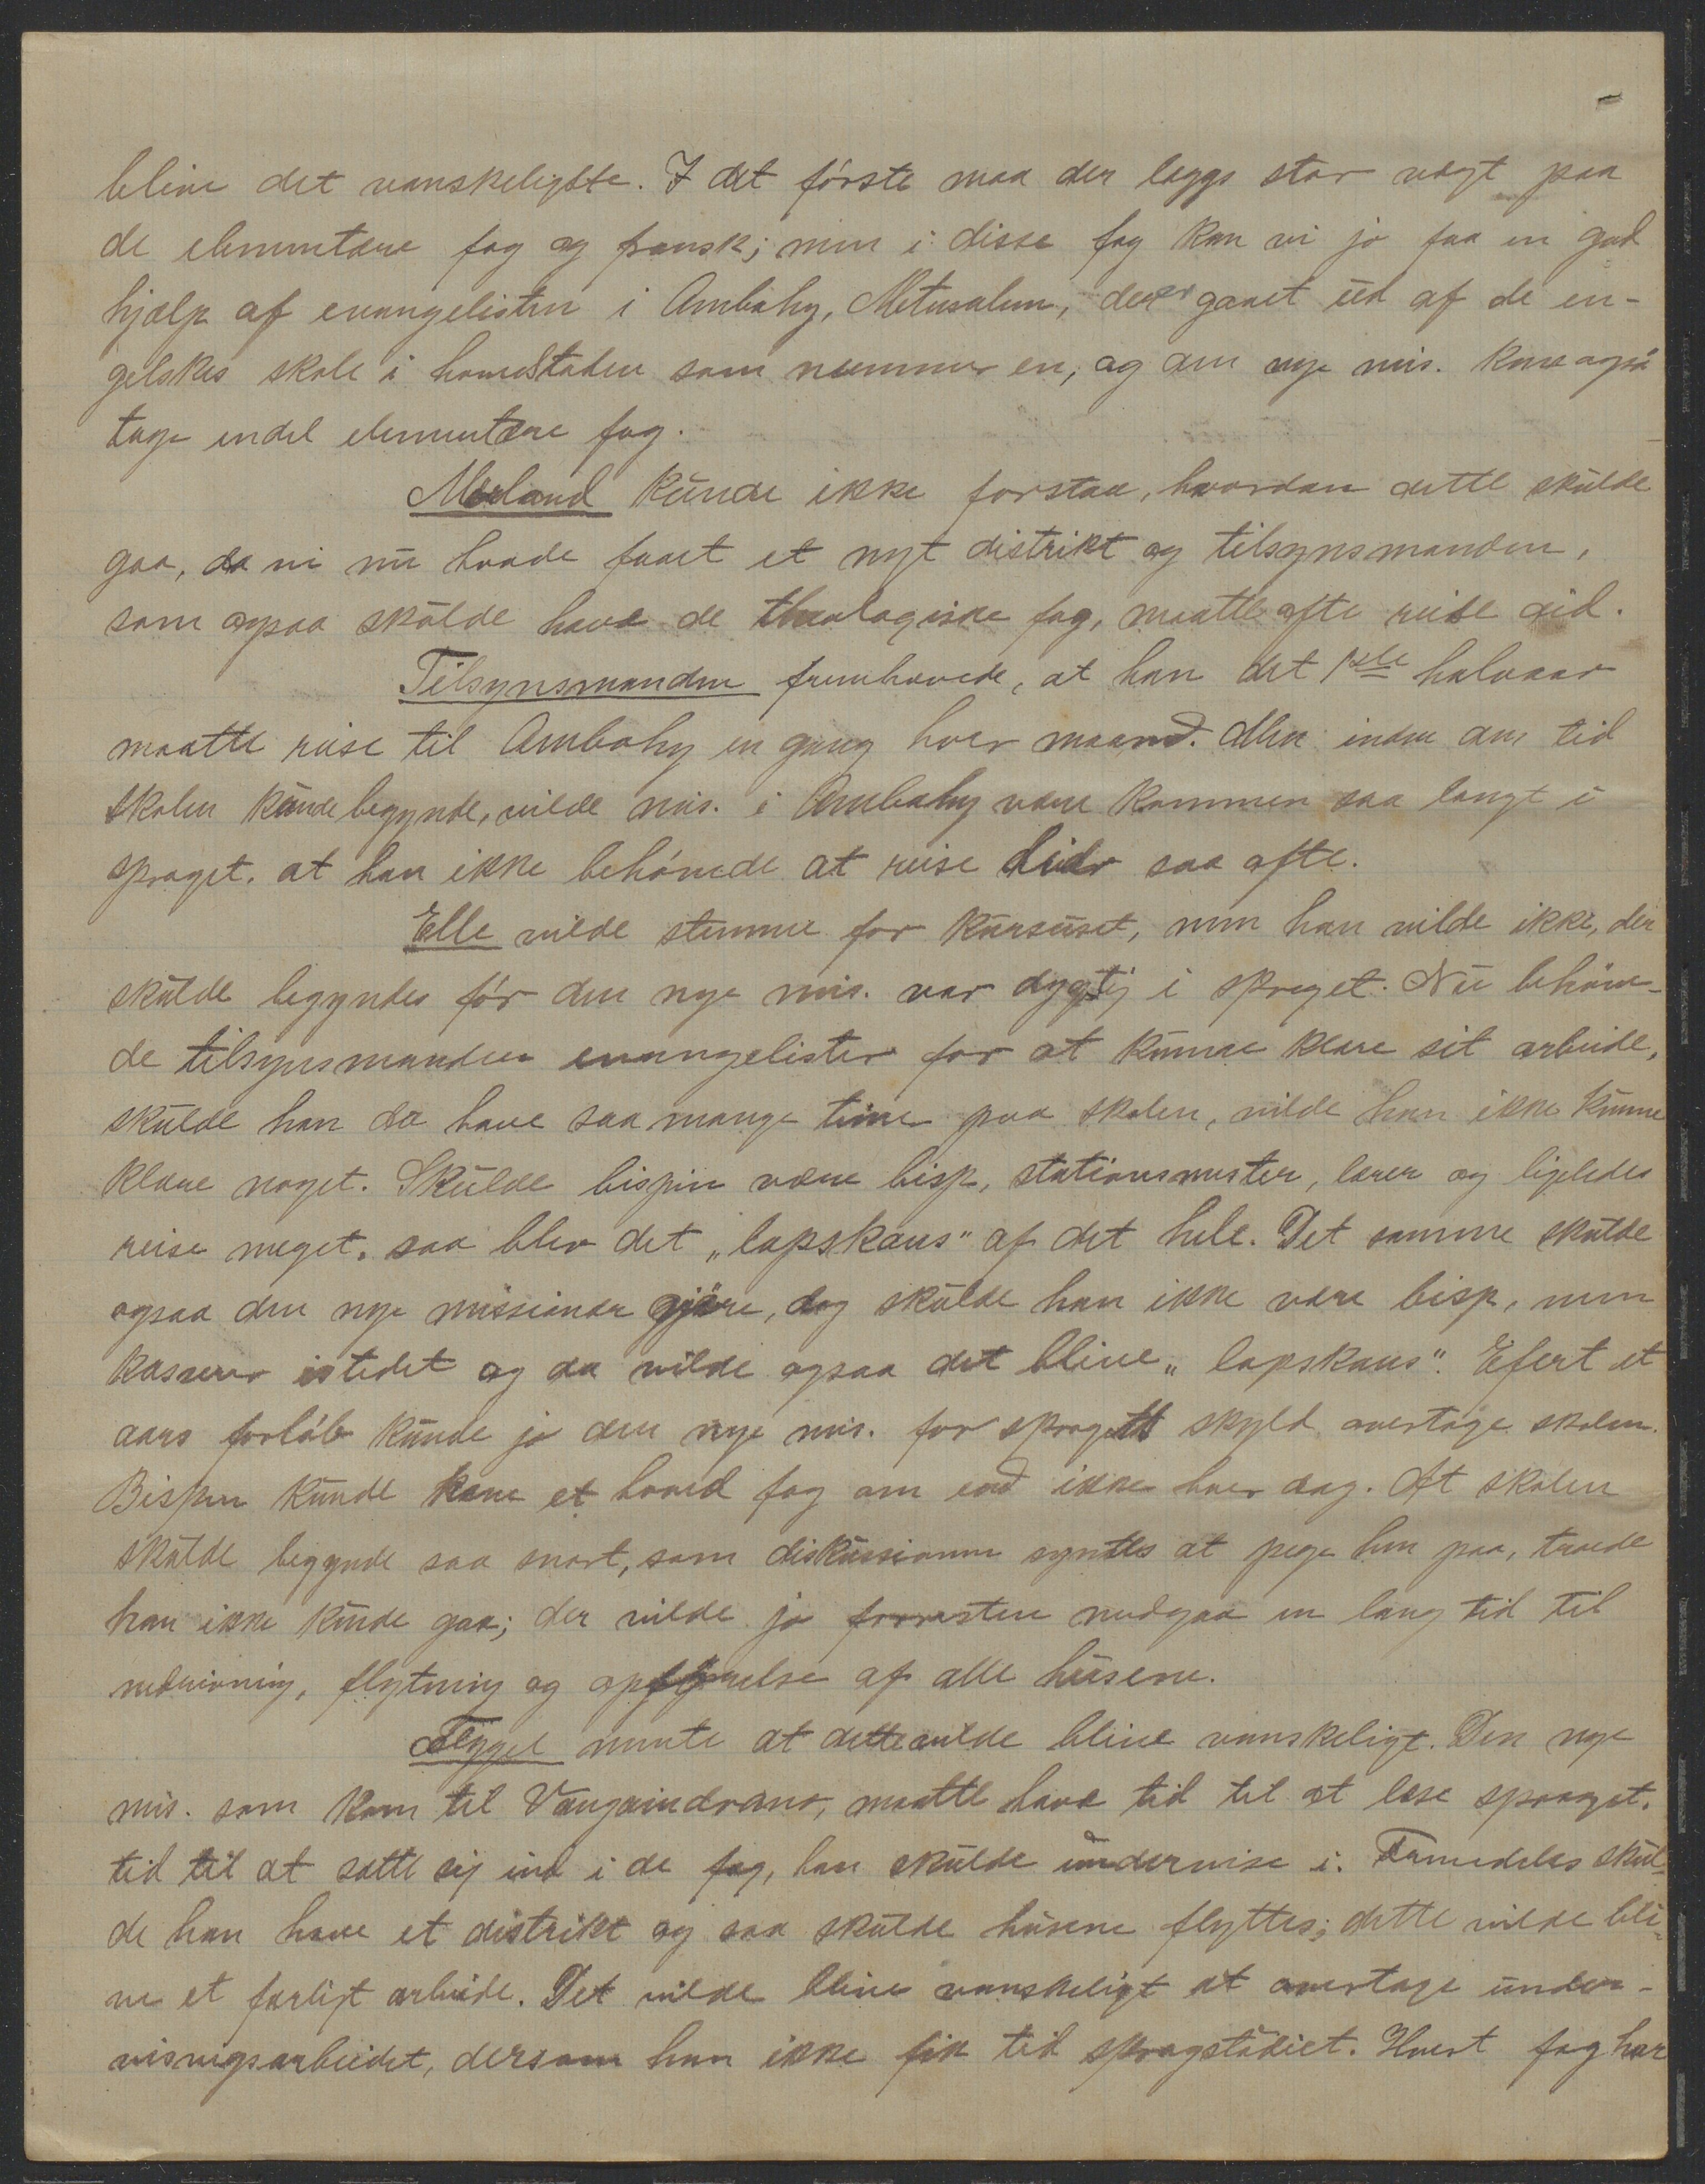 blive det vanskeligste. I det første maa der lægges stor vægt paa
de elementære fag og fransk; men i disse fag kan vi jo faa en god
hjælp af evangelisten i Ambohy, Metusalem, der er gaaet ud af de en-
gelskes skole i hovedstaden som nummer en, og den nye mis. kan også
tage endel elementære fag.
Meland kunde ikke forstaa, hvordan dette skulde
gaa, da vi nu havde faaet et nyt distrikt og tilsynsmanden,
som ogsaa skulde have de theologiske fag, maatte ofte reise did.
Tilsynsmanden fremhævede, at han det 1ste halvaar
maatte reise til Ambohy en gang hver maaned. Men inden den tid
skolen kunde begynde, vilde mis. i Ambohy være kommen saa langt i
sproget, at han ikke behøvede at reise did saa ofte.
Elle vilde stemme for kursuset, men han vilde ikke, der
skulde begyndes før den nye mis. var dygtig i sproget. Nu behøve-
de tilsynsmanden evangelister for at kunne klare sit arbeide,
skulde han da have saa mange timer paa skolen, vilde han ikke kunne
klare noget. Skulde bispen være bisp, stationsmester, lærer og ligeledes
reise meget, saa blev det "lapskaus" af det hele. Det samme skulde
ogsaa den nye missionær gjøre, dog skulde han ikke være bisp, men
kasserer istedet og da vilde ogsaa det blive "lapskaus". Efert et
aars forløb kunde jo den nye mis. for sprogets skyld overtage skolen.
Bispen kunde have et hoved fag om end ikke hver dag. At skolen
skulde begynde saa snart, som diskussionen syntes at pege hen paa, troede
han ikke kunde gaa; der vilde jo forresten medgaa en lang tid til
nedrivning, flytning og opførelse af alle husene.
Flygel mente at dette vilde blive vanskeligt. Den nye
mis. som kom til Vangaindrano, maatte have tid til at læse sproget,
tid til at sætte sig ind i de fag, han skulde undervise i. Fremdeles skul-
de han have et distrikt og saa skulde husene flyttes; dette vilde bli-
ve et farligt arbeide. Det vilde blive vanskeligt at overtage under-
visnigsarbeidet, dersom han ikke fik tid sprogstudiet. Hvert fag har